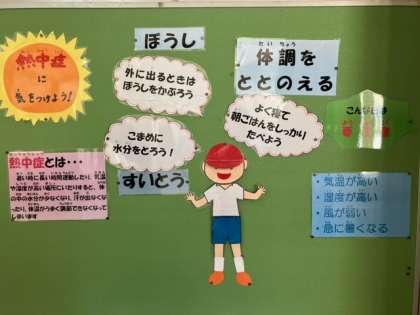 熱中症
に
気をつけよう!
ぼうし
外に出るときは
ぼうしをかぶろう
こまめに
水分をとろう!
すいとう
たい ちょう
体調を
ととのえる
よく寝て
朝ごはんをしっかり
たべよう
こんな日は
熱中症とは・・・
暑い時に長い時間運動したり、気温
や湿度が高い場所にいたりすると、体
の中の水分が少なくなり、汗が出なくな
ったり、体温がうまく調節できなくなって
しまいます
・気温が高い
・湿度が高い
・風が弱い
・急に暑くなる